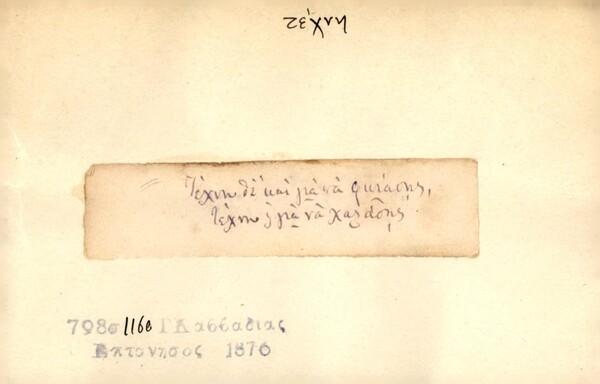 Τέχνη θέ' καὶ γιὰ νὰ φκιάσῃς,
τέχνη ϗ γιὰ νὰ χαλάσῃς
798σ 116θ Γ Καββαδιας
Επτονησος 1876